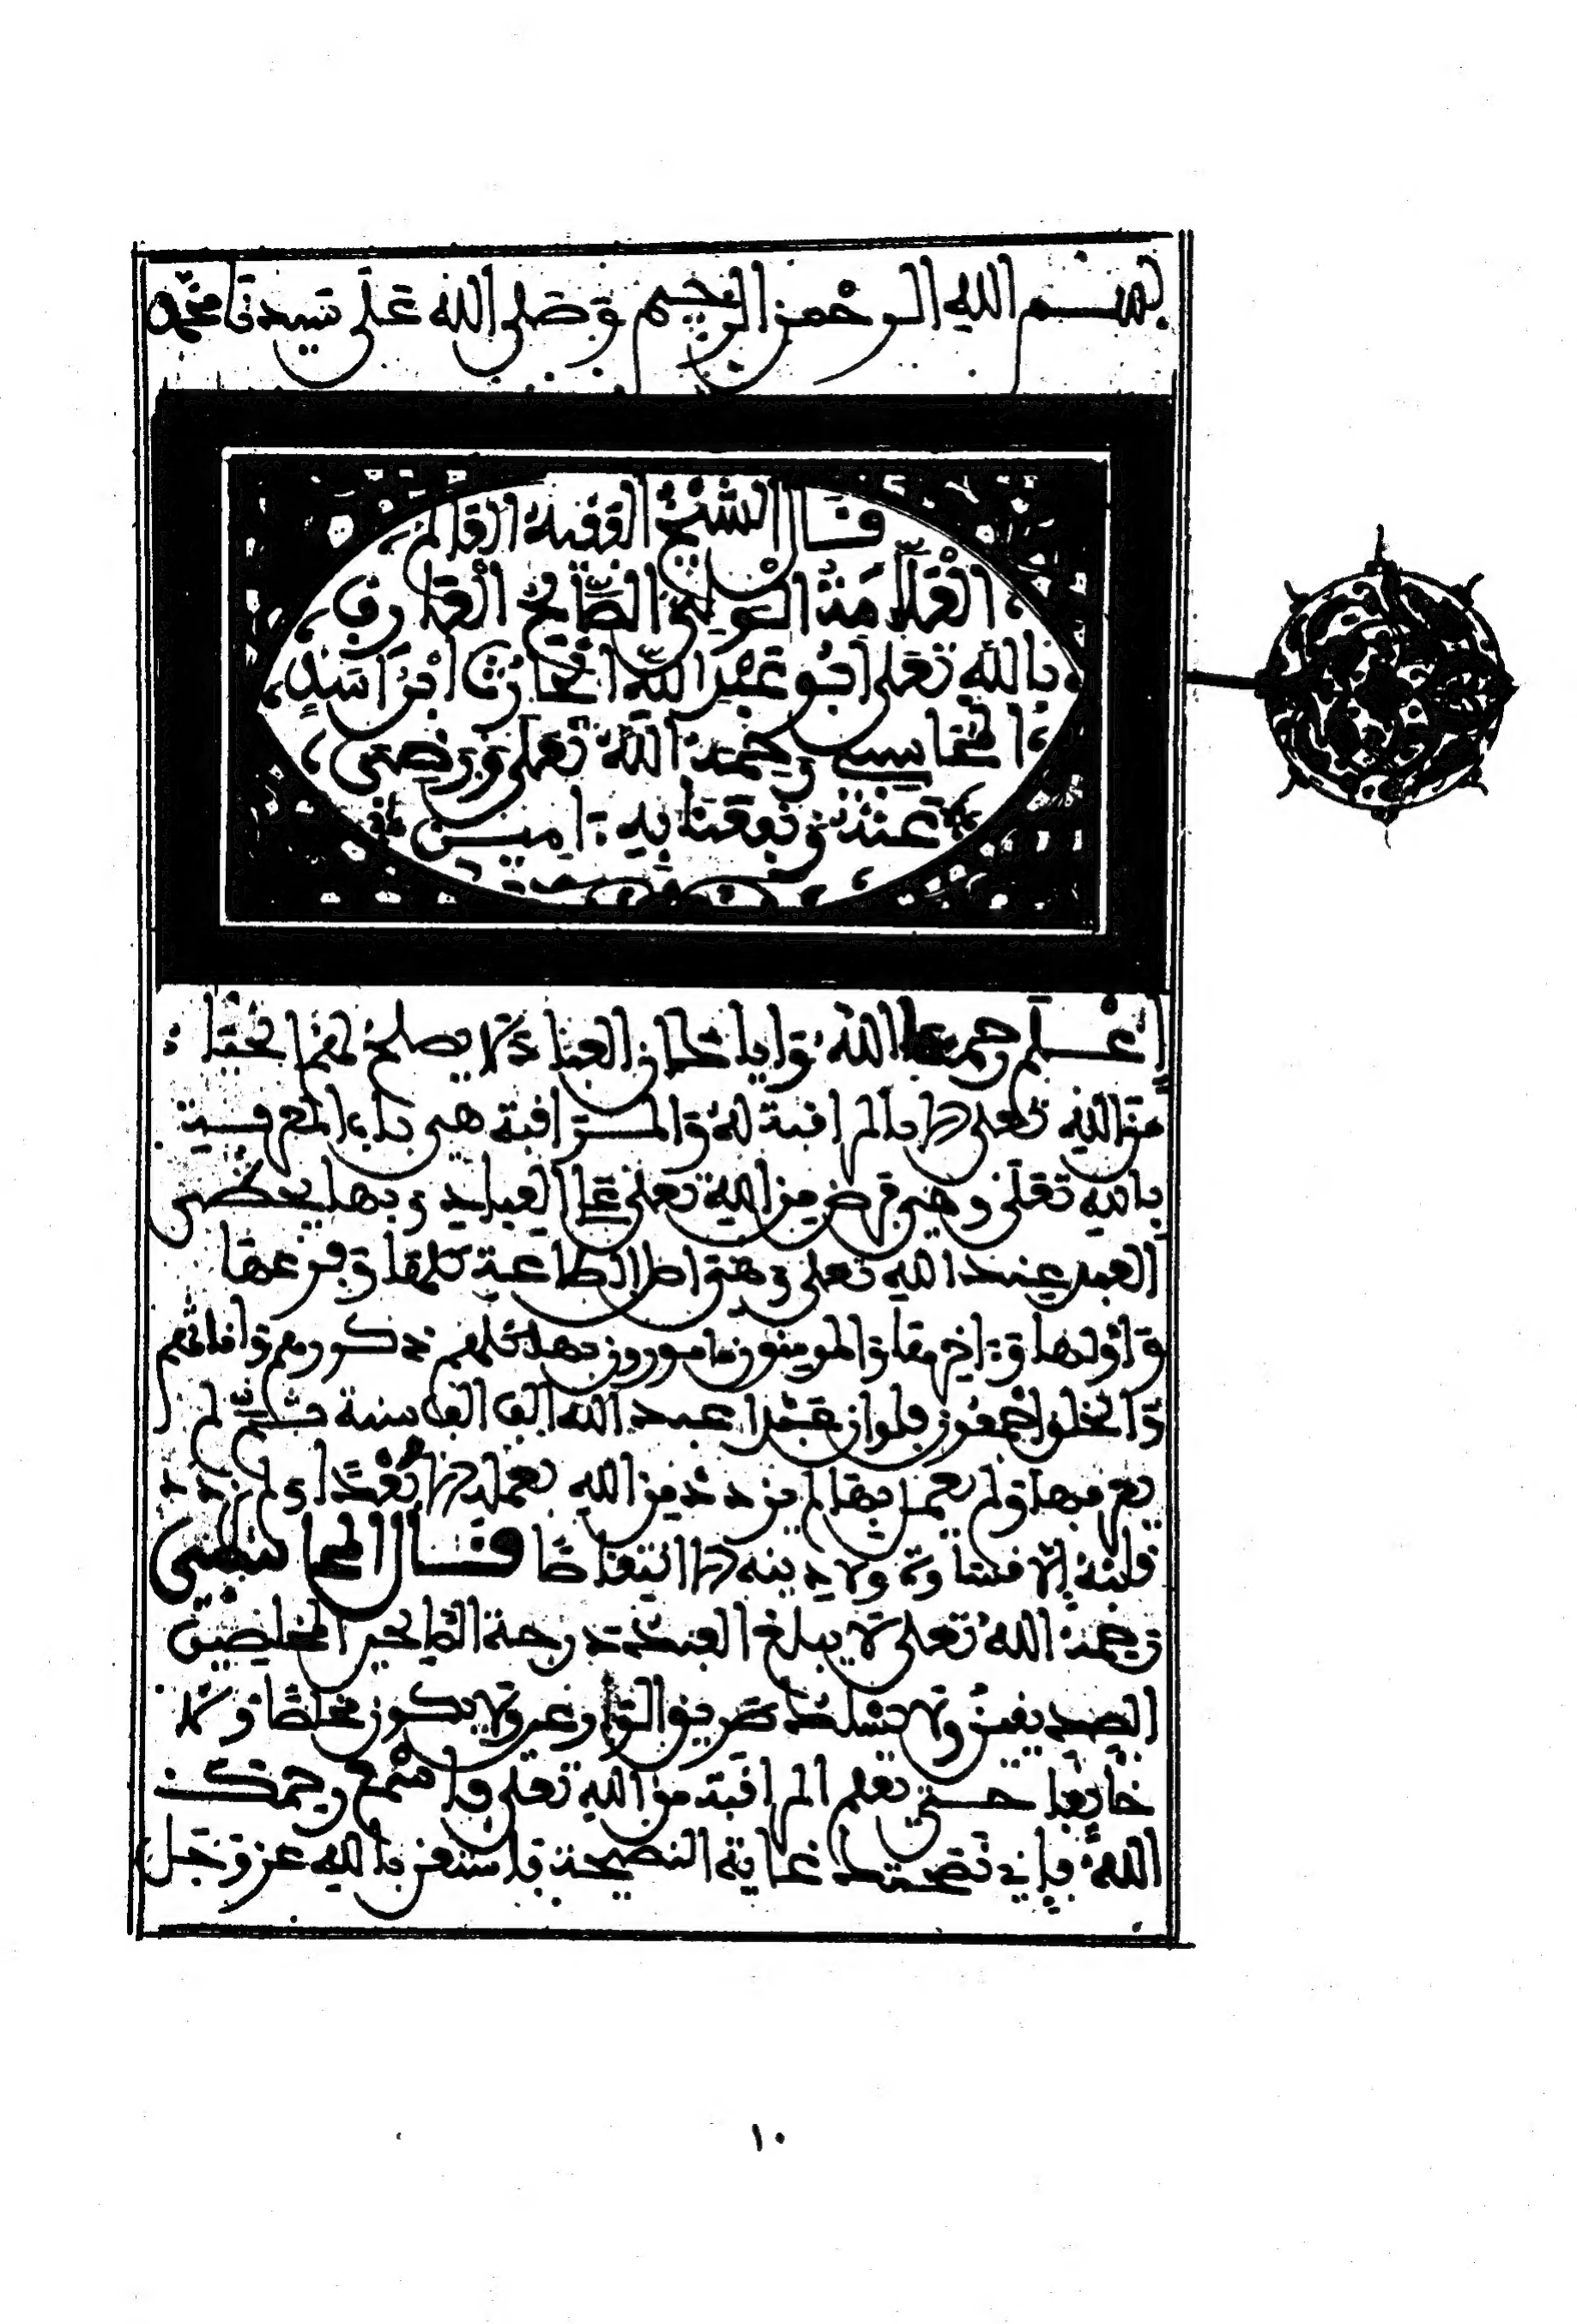 بسم الله الرحمن الرحيم وصلى الله على سيدنا محمد
قال الشيخ الفقيه العالم
العلامة الولي الصالح العارف
بالله تعلى أبو عبد الله الحارث ابن اسد
المحاسبي رحمه الله تعلى ورضى
عنه ونفعنا به امين
اعلم رحمنا الله وإياك ان العبادة لا يصلح لهم
مع الله تعلى الا بالمراقبة له والمراقبة هي باب المعرفة
بالله تعلى وهي فرض من الله تعلى على العباد وبها يحظى
العبد عند الله تعلى وهي اصل الطاعة كلها وفرعها
واولها وءاخرها والمومنون مامورون بها كلهم ذكورهم واناثهم
والخلق اجمعون فلو ان عبدا عبد الله الف الف سنة ثم لم
يعرفها ولم يعمل بها لم يزدد من الله بعمله الا بعدا ولم يزدد
قلبه إلا قساوة ولا دينه الا انتقاصا قال المحاسبي
رحمه الله تعلى لا يبلغ العبد درجة الصالحين المخلصين
الصديقين ولا يسلك طريق الوارعين ولا يكون مخلصا ولا
خائفا حتى يعلم المراقبة من الله تعلى فاسمع رحمك
الله فإني نصحتك غاية النصيحة فاستعن بالله عز وجل
١٠